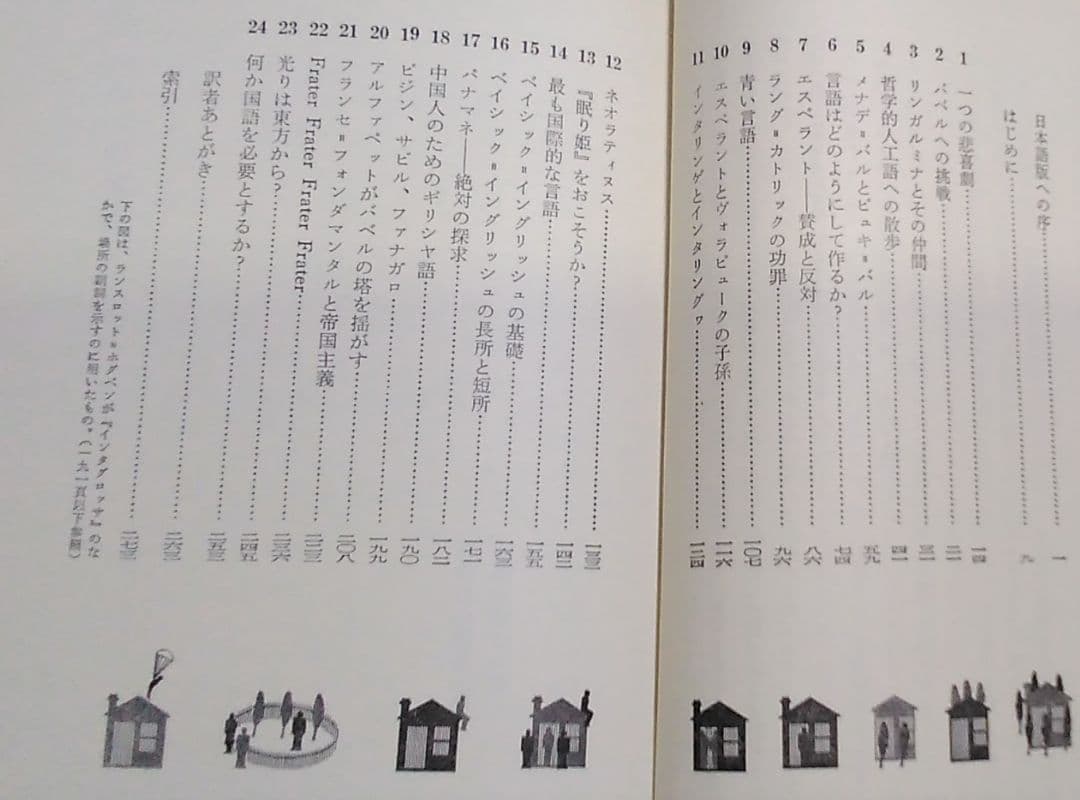 日本語版への序……一
はじめに……九
1 一つの悲喜劇……一四
2 バベルへの挑戦……二一
3 リンガルミナとその仲間……三一
4 哲学的人工語への散歩……四一
5 メナデ=バルとピュキ=バル……五九
6 言語はどのようにして作るか?……七四
7 エスペラント——賛成と反対……八六
8 ラング=カトリックの功罪……九六
9 青い言語……一〇七
10 エスペラントとヴォラピュークの子孫……一一六
11 インタリンゲとインタリングヮ……一二四
12 ネオラティヌス……一三三
13 『眠り姫』をおこそうか?……一四二
14 最も国際的な言語……一五五
15 ベイシック=イングリッシュの基礎……一六三
16 ベイシック=イングリッシュの長所と短所……一七一
17 パナマネ——絶対の探求……一八二
18 中国人のためのギリシャ語……一九〇
19 ピジン、サビル、ファナガロ……一九九
20 アルファベットがバベルの塔を揺がす……二〇八
21 フランセ=フォンダマンタルと帝国主義……二二三
22 Frater Frater Frater Frater……二三六
23 光りは東方から?……二四五
24 何か国語を必要とするか?……二五三
訳者あとがき……二六三
索引……二七三
下の図は、ランスロット=ホグベンが『インタグロッサ』のな
かで、場所の副詞を示すのに用いたもの。(一九一頁以下参照)